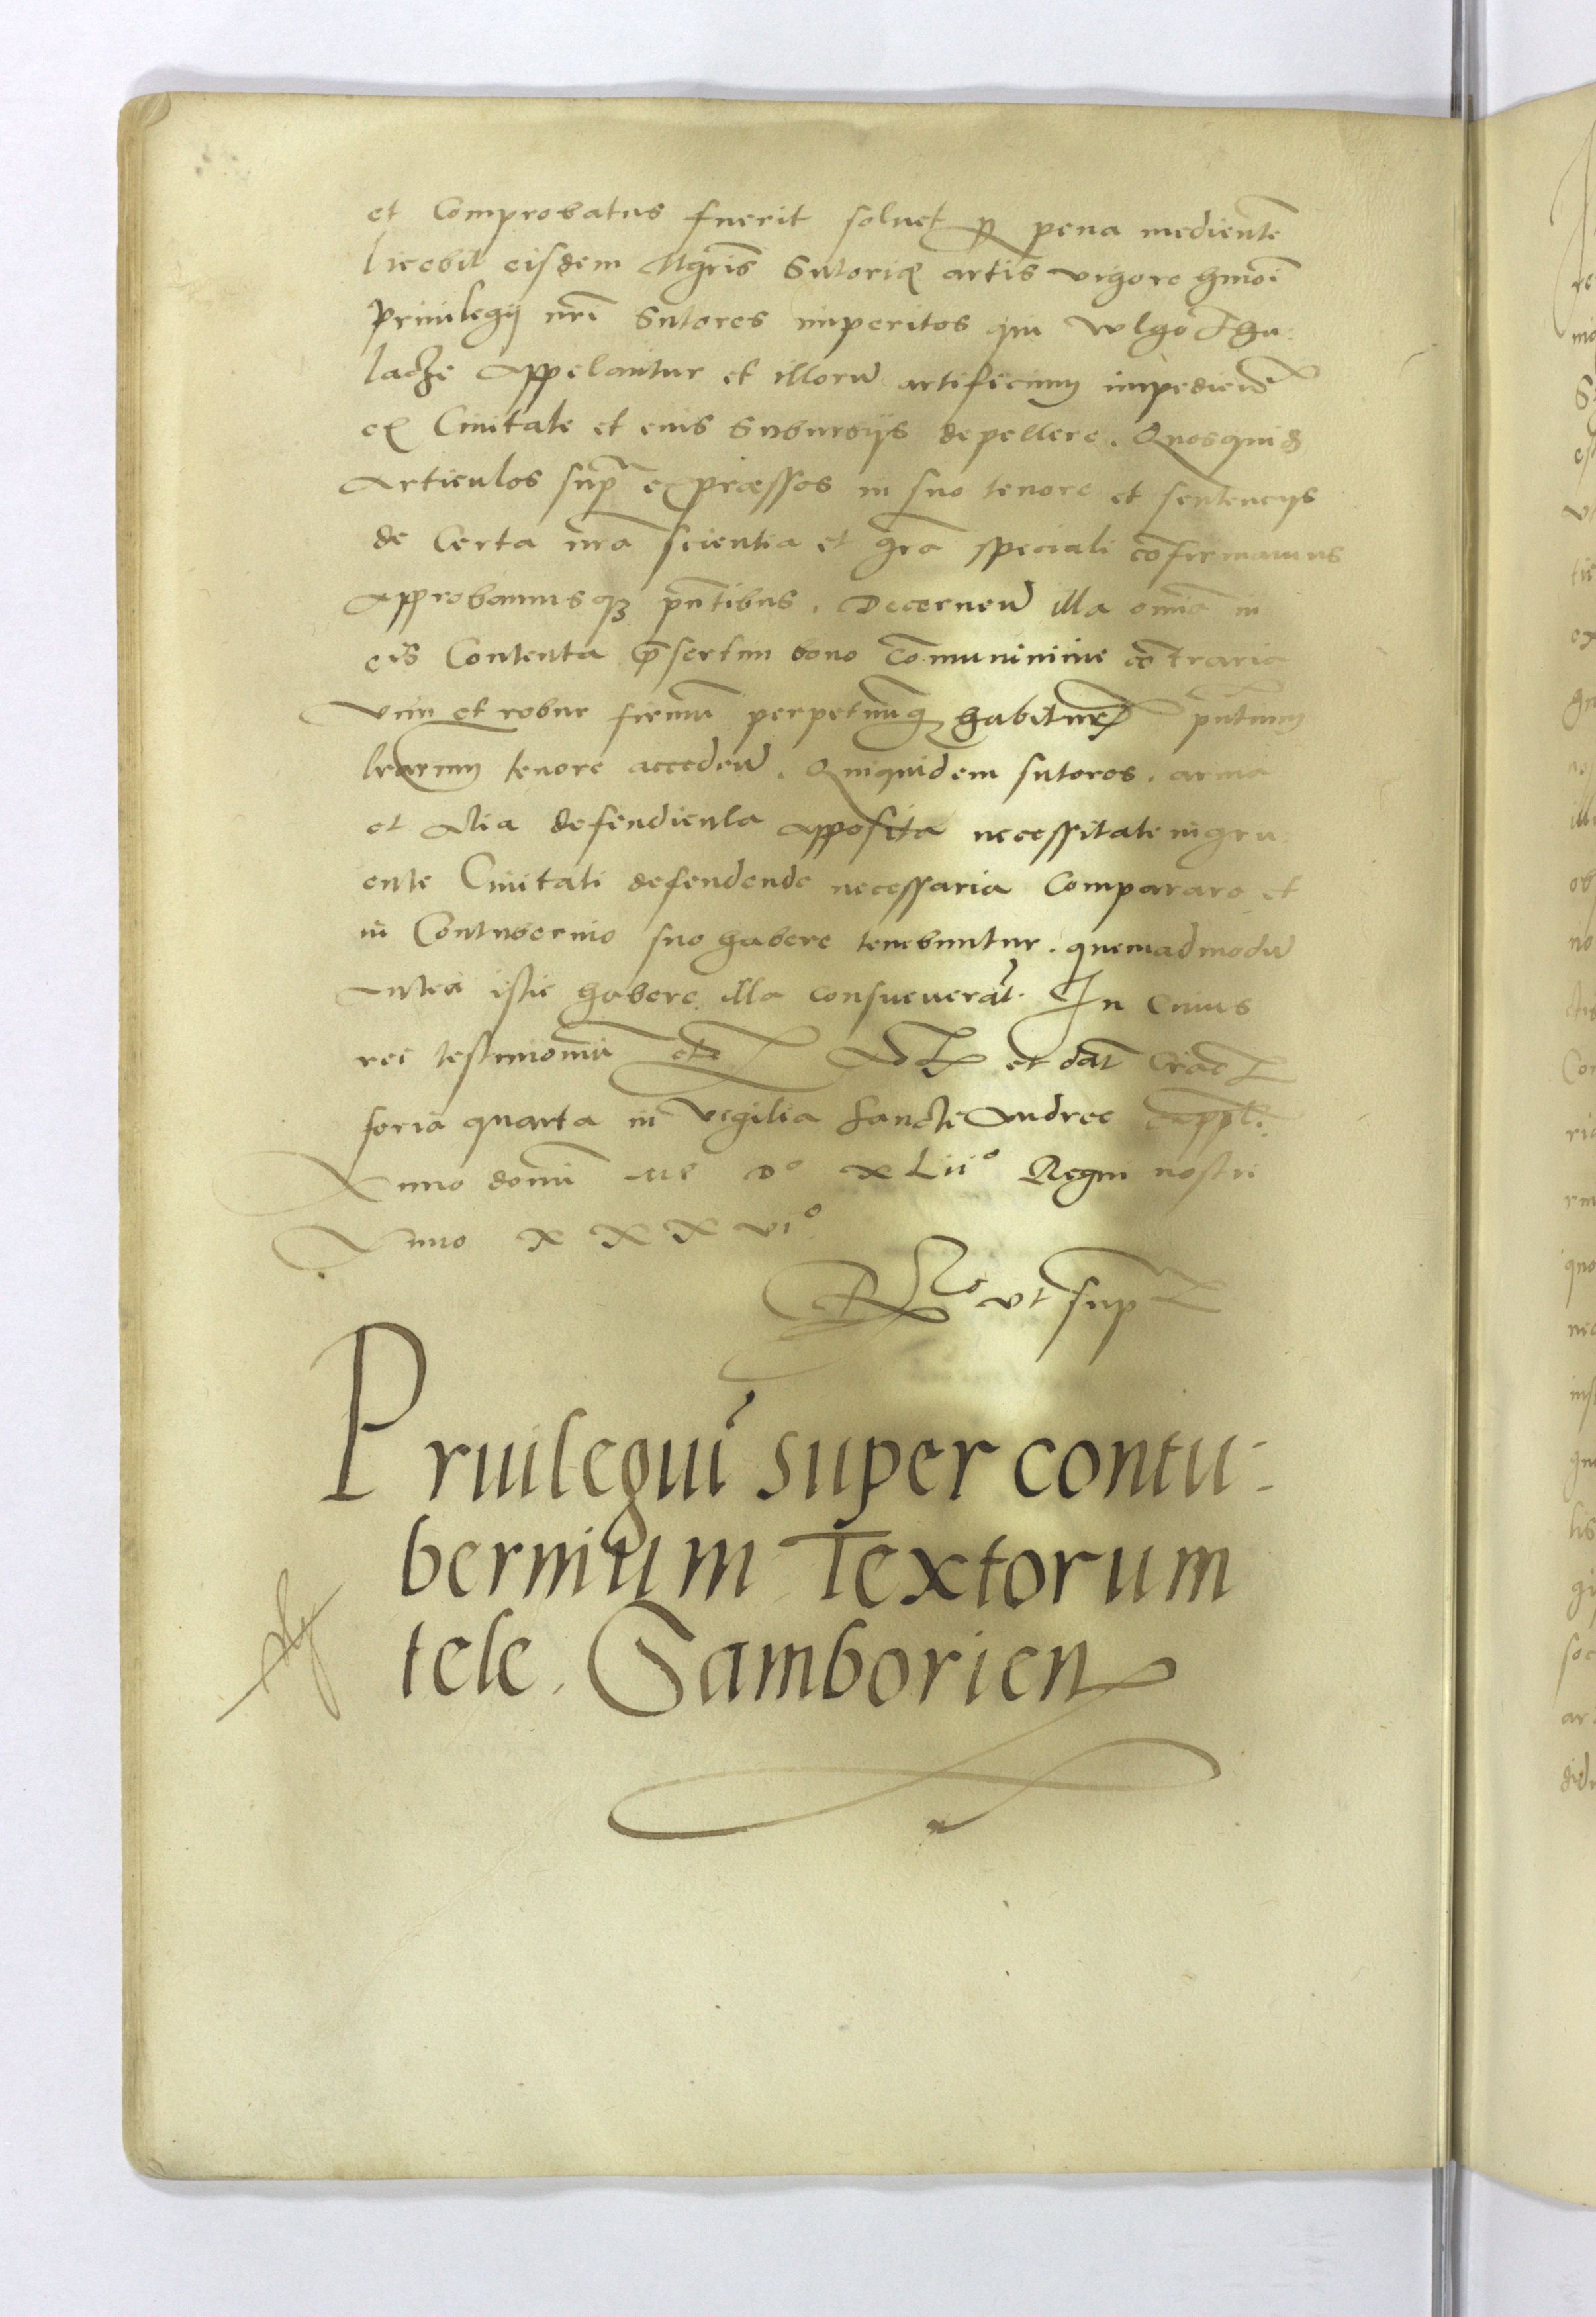 et Comprobatus fuerit soluet p pena medientē
licebit eisdem Mgris Sutoriæ artis vigore hmoi
Priuilegij nri Sutores imperitos qui wlgo Thu-
lacze Appelantur et illorū artificium impedien̄
ex Ciuitate et eius Suburbijs depellere. Quosquid
Articulos supra expræssos in suo tenore et sentencijs
de Certa nra scientia et gra speciali cōfirmamus
Approbamusqȝ pn̄tibus. Decernen̄ illa omīa in
eis Contenta p̄sertim bono cōmuni nime cōtraria
vim et robur firmū perpetuūqȝ habitura pn̄tium
lrarum tenore acceden̄. Quiquidem sutores. arma
et Alia defendicula Apposita necessitate ingru
ente Ciuitati defendende necessaria Comparare et
in Contubernio suo habere tenebuntur. quemadmodū
Antea istic habere illa consueuerāt. In Cuius
rei testimoniū etc Act et dat Crac
feria quarta in vigilia Sancte Andree Appli.
Anno domī M D° xLii° Regni nostri
Anno x x x vi°
Rlo vt supra
Priuilegiū super contu-
bernium Textorum
tele. Samborien